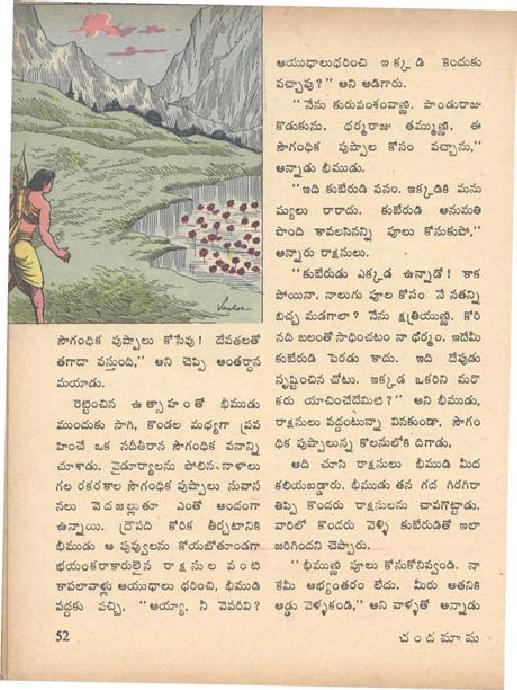 సౌగంధిక పుష్పాలు కోసేవు! దేవతలతో
తగాదా వస్తుంది,” అని చెప్పి అంతర్ధాన
మయాడు.
రెట్టించిన ఉత్సాహంతో భీముడు
ముందుకు సాగి, కొండల మధ్యగా ప్రవ
హించే ఒక నదీతీరాన సౌగంధిక వనాన్ని
చూశాడు. వైడూర్యాలను పోలిన నాళాలు
గల రకరకాల సౌగంధిక పుష్పాలు సువాస
నలు వెదజల్లుతూ ఎంతో అందంగా
ఉన్నాయి. ద్రౌపది కోరిక తీర్చటానికి
భీముడు ఆ పువ్వులను కోయబోతూండగా
భయంకరాకారులైన రాక్షసుల వంటి
కాపలావాళ్లు ఆయుధాలు ధరించి, భీముడి
వద్దకు వచ్చి, “అయ్యా, నీ వెవరివి?
ఆయుధాలుధరించి ఇక్కడి కెందుకు
వచ్చావు?” అని అడిగారు.
“నేను కురువంశంవాణ్ణి. పాండురాజు
కొడుకును. ధర్మరాజు తమ్ముణ్ణి. ఈ
సౌగంధిక పుష్పాల కోసం వచ్చాను,”
అన్నాడు భీముడు.
“ఇది కుబేరుడి వనం. ఇక్కడికి మను
ష్యులు రారాదు. కుబేరుడి అనుమతి
పొంది కావలసినన్ని పూలు కోసుకుపో,”
అన్నారు రాక్షసులు.
“కుబేరుడు ఎక్కడ ఉన్నాడో! కాక
పోయినా, నాలుగు పూల కోసం నే నతన్ని
బిచ్చ మడగాలా? నేను క్షత్రియుణ్ణి. కోరి
నది బలంతో సాధించటం నా ధర్మం. ఇదేమీ
కుబేరుడి పెరడు కాదు. ఇది దేవుడు
సృష్టించిన చోటు. ఇక్కడ ఒకరిని మరొ
కరు యాచించేదేమిటి?” అని భీముడు,
రాక్షసులు వద్దంటున్నా వినకుండా, సౌగం
ధిక పుష్పాలున్న కొలనులోకి దిగాడు.
అది చూసి రాక్షసులు భీముడి మీద
కలియబడ్డారు. భీముడు తన గద గిరగిరా
తిప్పి కొందరు రాక్షసులను చావగొట్టాడు.
వారిలో కొందరు వెళ్ళి కుబేరుడితో ఇలా
జరిగిందని చెప్పారు.
“భీముణ్ణి పూలు కోసుకోనివ్వండి. నా
కేమీ అభ్యంతరం లేదు. మీరు అతనికి
అడ్డు వెళ్ళకండి,” అని వాళ్ళతో అన్నాడు
52
చందమామ